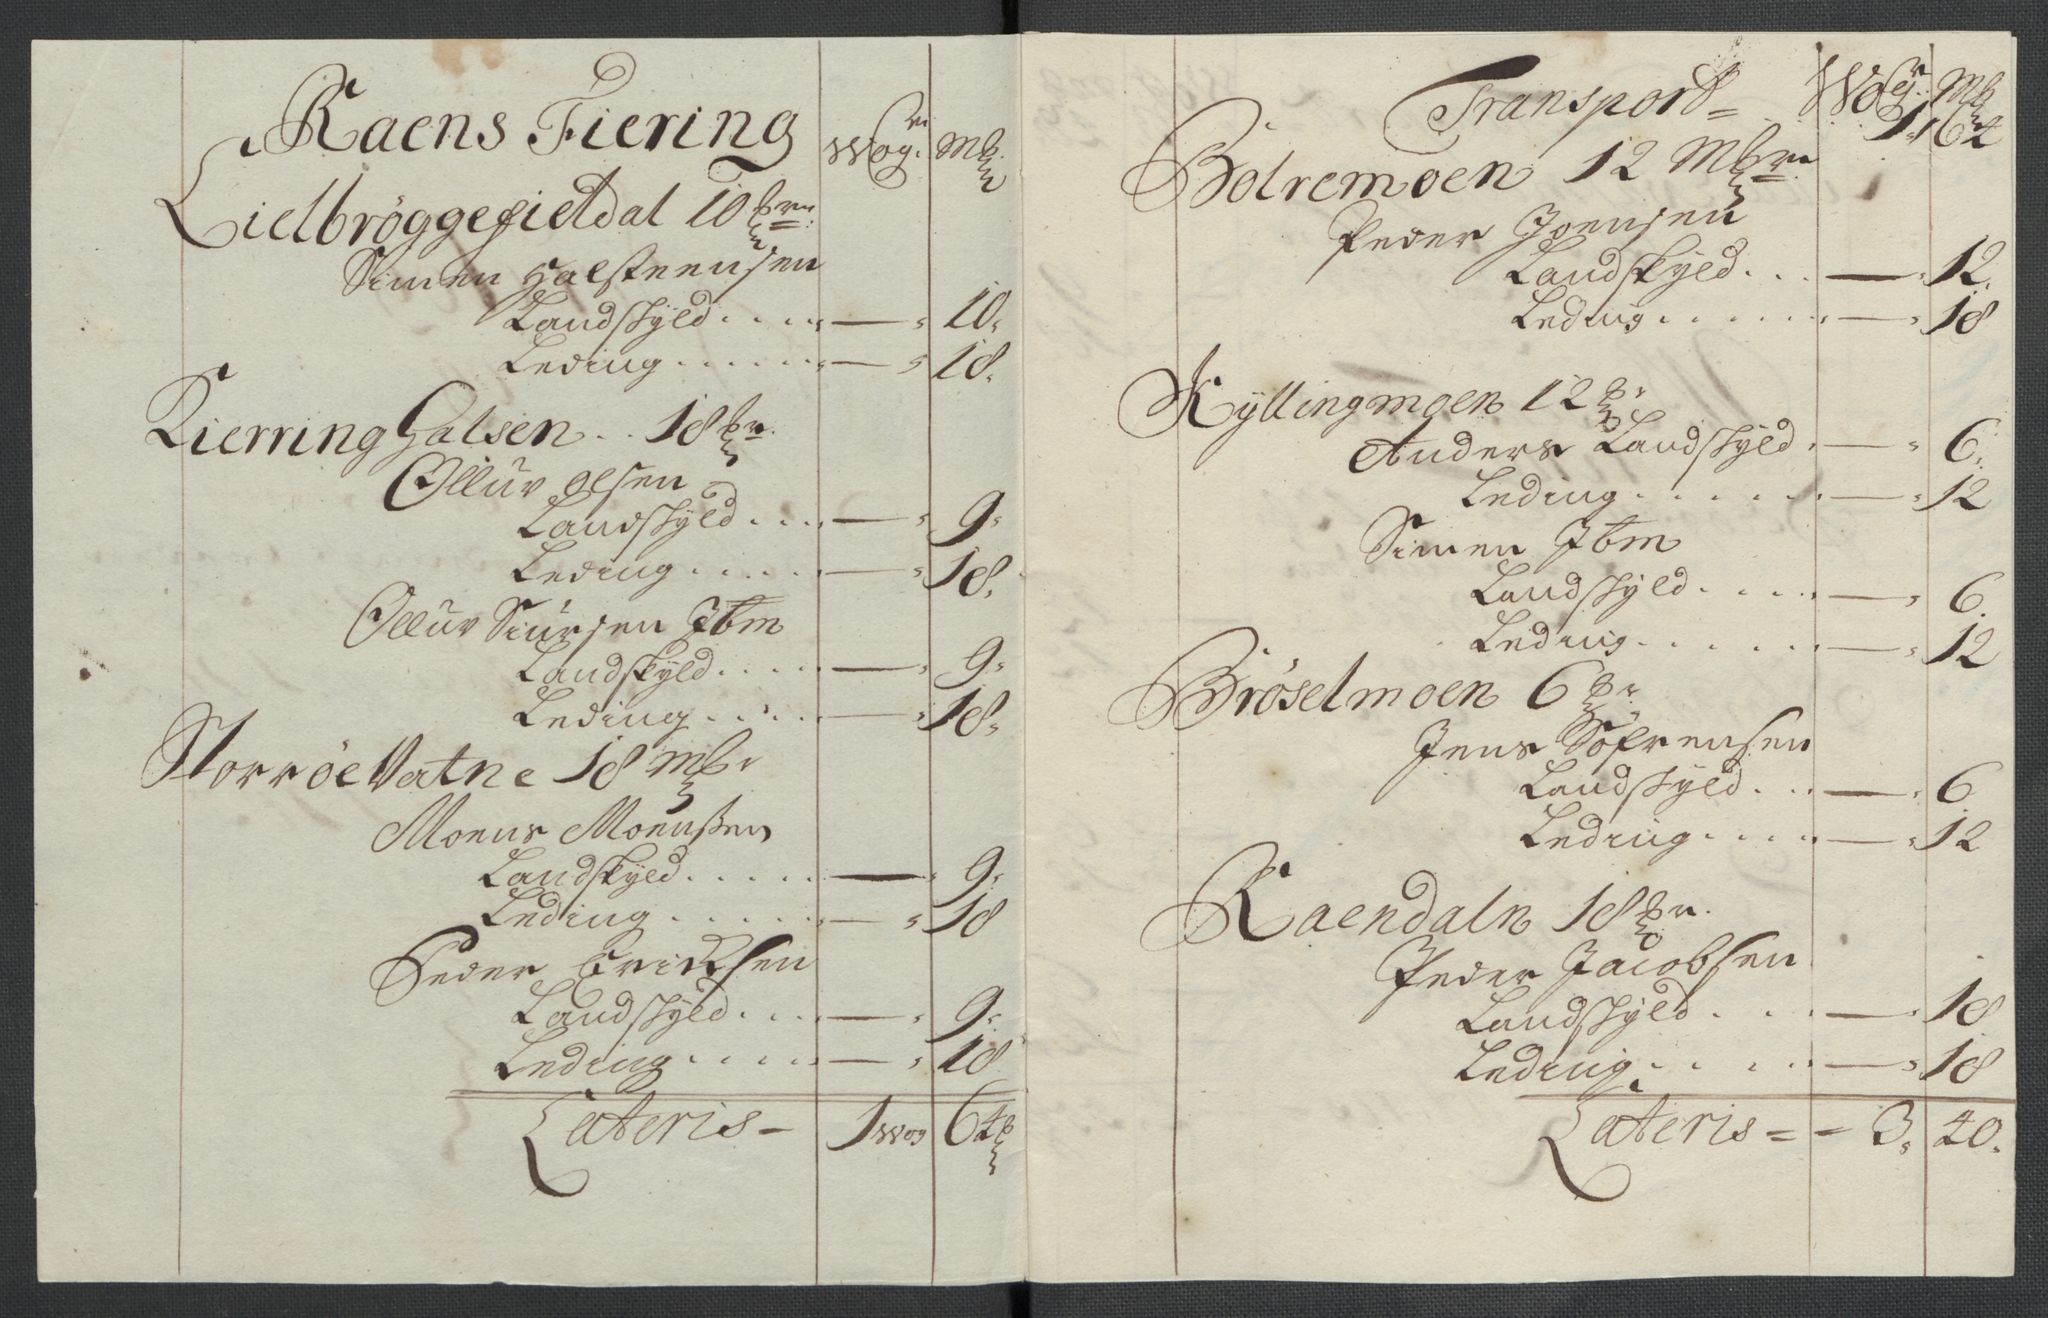 Raens Fiering
Wog: Mk
Lielbröggefieldal 10
Simen Halsteensen
Landskyld . . . . — 10.
Leding . . . . . . — 18.
Kierring Halsen . . 18
Olluv olsen
Landskyld . . . — 9.
Leding . . . . . — 18.
Olluv Siursen Ibm
Landskyld . . . . — 9.
Leding . . . . — 18.
Storröe Vatne 18
Moens Moensen
Landskyld . . . . . — 9.
Leding . . . . . — 18
Peder Ericksen
Landskyld . . . . — 9.
Leding . . . . . — 18
Lateris – 1 Wog 64
Transport =
Wog: Mk
1. 64
Bolremoen 12
Peder Joensen
Landskyld . . . — 12.
Leding . . . . . . — 18
Kyllingmoen 12
Anders Landskyld . — 6.
Leding . . . . . . — 12
Simen Ibm
Landskyld . . . . — 6.
Leding . . . . . . — 12
Bröselmoen 6
Jens Söfrensen
Landskyld . . . — 6
Leding . . . . . — 12
Raendaln 18
Peder Jacobsen
Landskyld . . . . — 18
Leding . . . . . — 18
Lateris = – 3. 40.